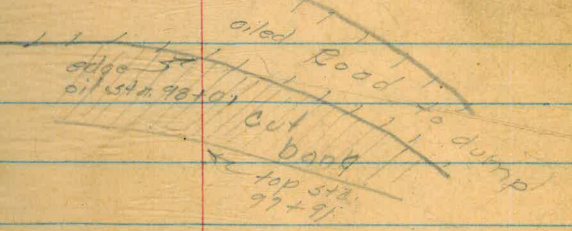 oiled Road to dump
edge
oil sta. 98+01
cut
bank
top sta.
97+91